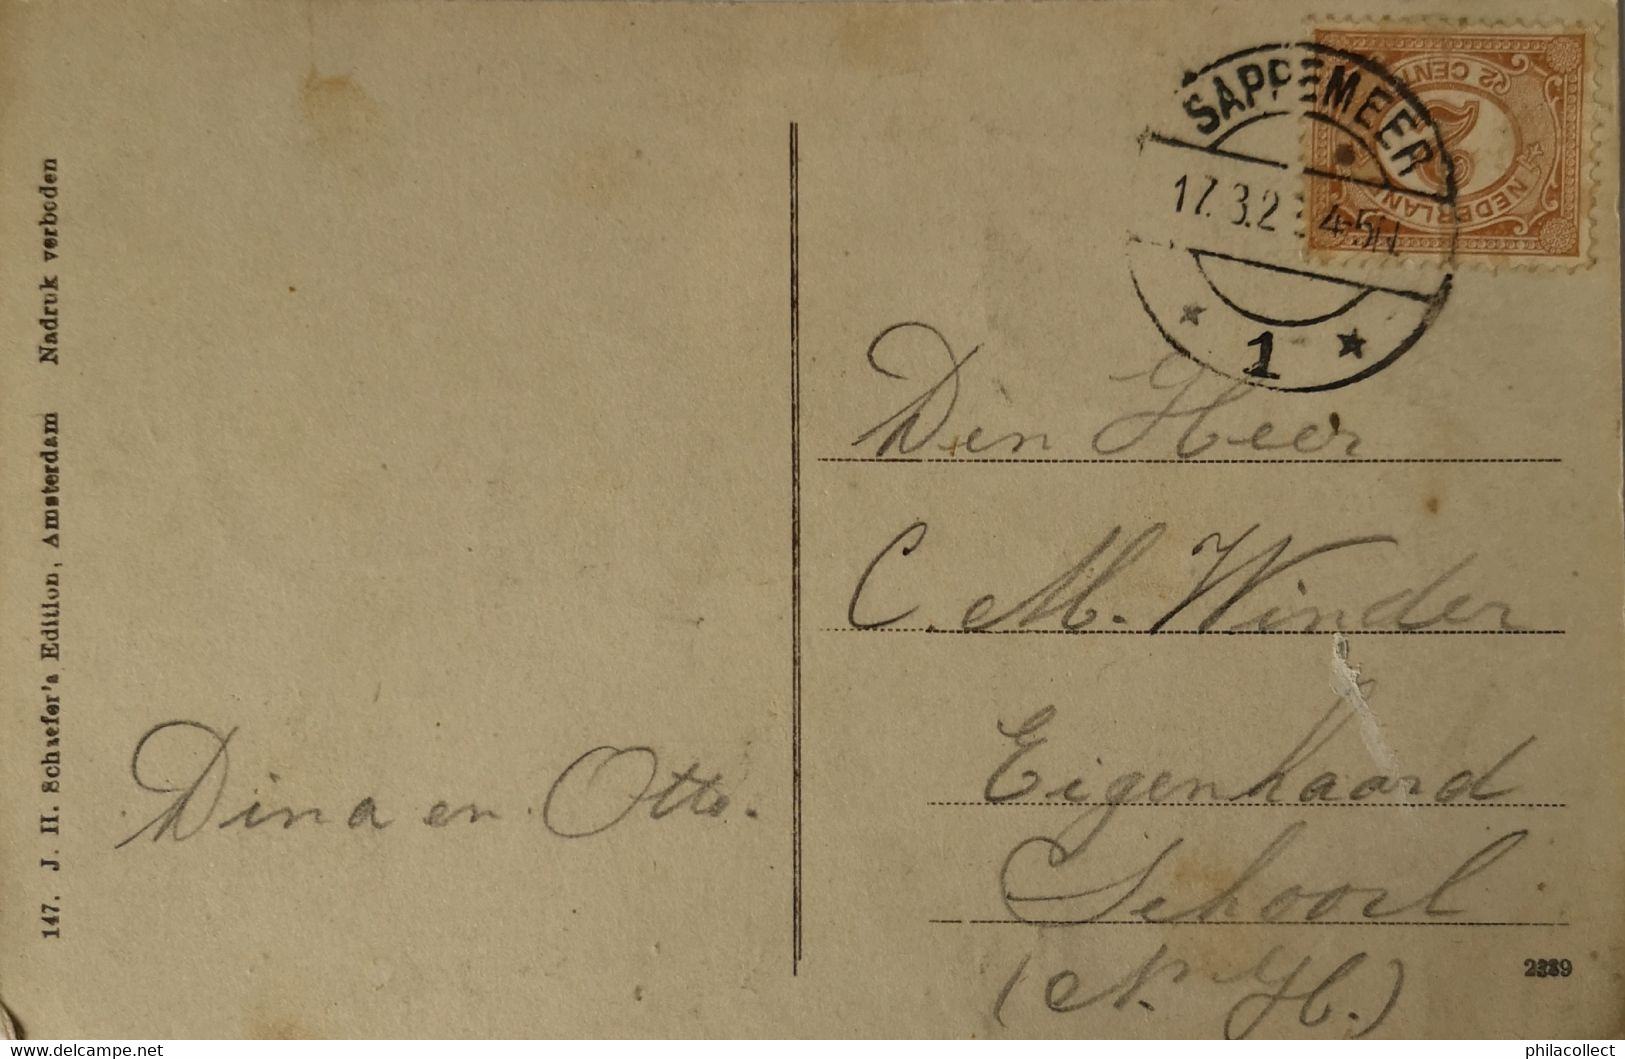 147. J. H. Schaefer's Edition, Amsterdam Nadruk verboden
SAPPEMEER
17.3.2 4-5N
1
2 CENT
2
NEDERLAND
Den Heer
C. M. Winder
Eigenhaard
Schoorl
(N. H.)
Dina en Otto.
philacollect